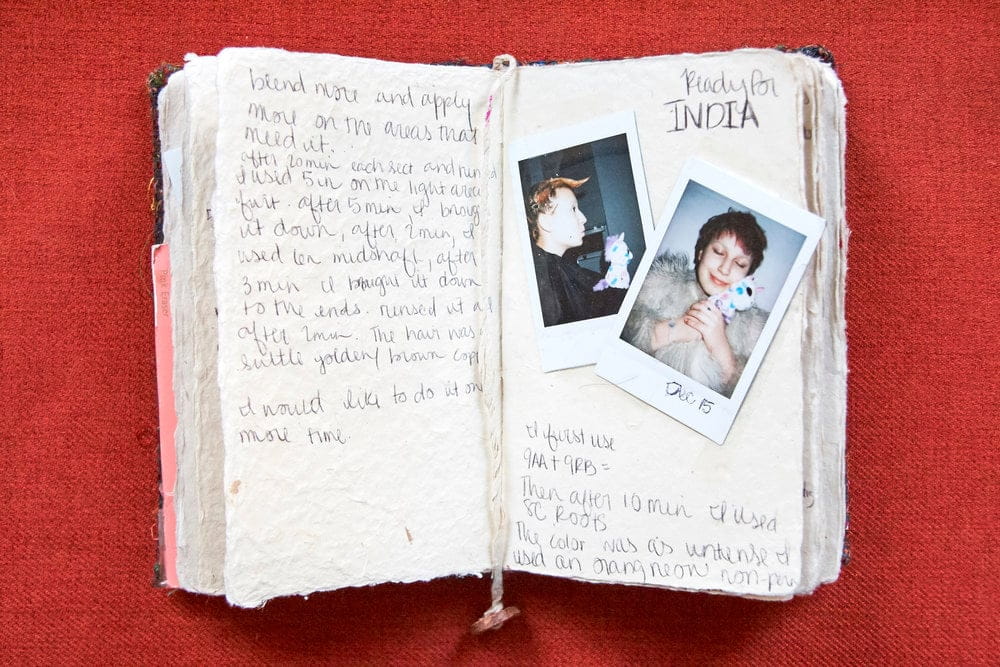 blend more and apply
more on the areas that
need it.
after 20min each sect and
I used 5in on the light area
furt after 5 min I broug
it down, after 2min, I
used ion midshaft, after
3 min I brought it down
to the ends. rinsed it a
after 2min. The hair was
suttle golden/brown copp
I would like to do it on
more time.
Ready for
INDIA
Dec 15
I first use
9AA + 9RB =
Then after 10 min I used
8C Roots
The color was as intense I
used an orang neon non-per